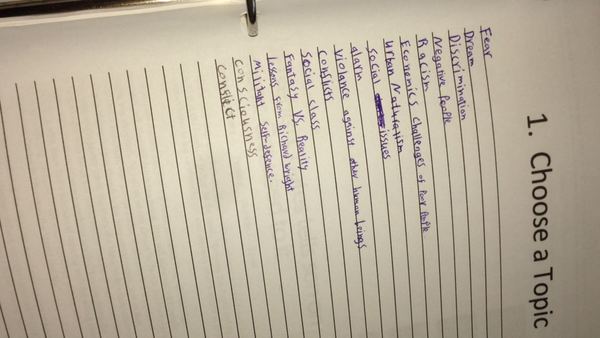 1. Choose a Topic
Fear
Dream
Discrimination
Negative People
Racism
Economics challenges of Poor People
Urban Nathralism
Social issues
alarm
Violance against other human beings
Conflicts
Social class
Fantasy VS. Reality
lessons from Richard wright
Militant Self-defence.
Consciousness
Conflect